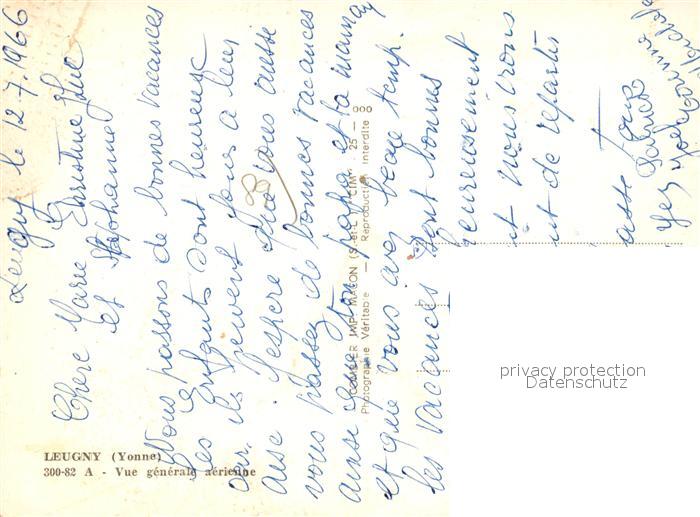 Leugny le 12.7.1966
Chere Marie Christine Luc
et Stephanne
Nous passons de bonnes vacances
les enfants sont heureux
car ils peuvent jouer à leur
aise. J'espère que vous aussi
vous passez de bonnes vacances
ainsi que ton papa et ta maman
et que vous avez beau temp.
les vacances sont bonns
heureusement
nous irons
de repartir
tous
Patrick
LEUGNY (Yonne)
300-82 A - Vue générale aérienne
COMBIER IMP. MACON (S.-et-L.) "CIM" 25 - 000
Photographie Véritable - Reproduction Interdite
privacy protection
Datenschutz